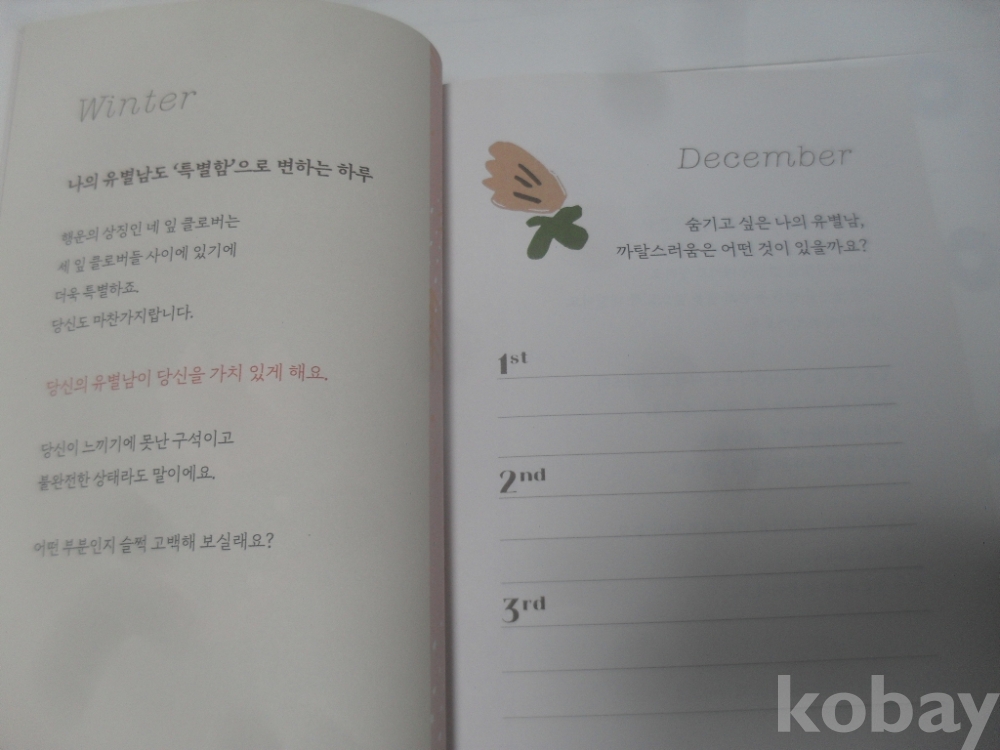 Winter
나의 유별남도 '특별함'으로 변하는 하루
행운의 상징인 네 잎 클로버는
세 잎 클로버들 사이에 있기에
더욱 특별하죠.
당신도 마찬가지랍니다.
당신의 유별남이 당신을 가치 있게 해요.
당신이 느끼기에 못난 구석이고
불완전한 상태라도 말이에요.
어떤 부분인지 슬쩍 고백해 보실래요?
December
숨기고 싶은 나의 유별남,
까탈스러움은 어떤 것이 있을까요?
1st
2nd
3rd
kobay